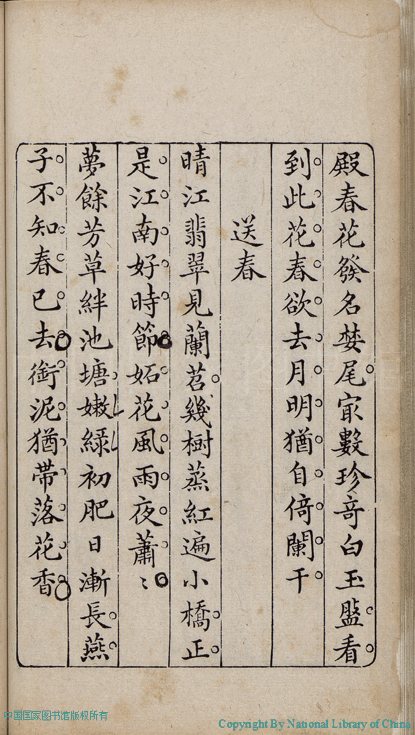 殿春花發名婪尾冣數珍竒白玉盤看
到此花春欲去月明猶自倚闌干
送春
晴江翡翠見蘭苕幾樹蒸紅遍小橋正
是江南好時節妬花風雨夜蕭〻
夢餘芳草絆池塘嫩綠初肥日漸長燕
子不知春已去銜泥猶帶落花香
中国国家图书馆版权所有
Copyright By National Library of China